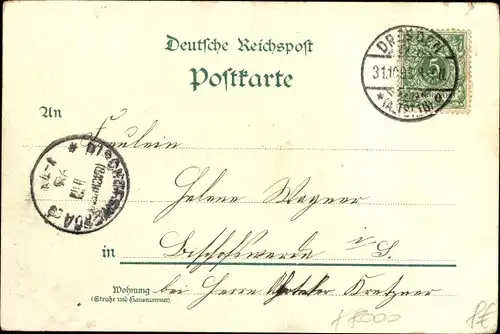 Deutsche Reichspost
Postkarte
DRESDEN
31.10.98
*(ALTST.)
5
An
Fräulein
Helene Wagner
in Bischofswerda i/S.
Wohnung bei Herrn Kretzner
(Straße und Hausnummer)
BISCHOFSWERDA